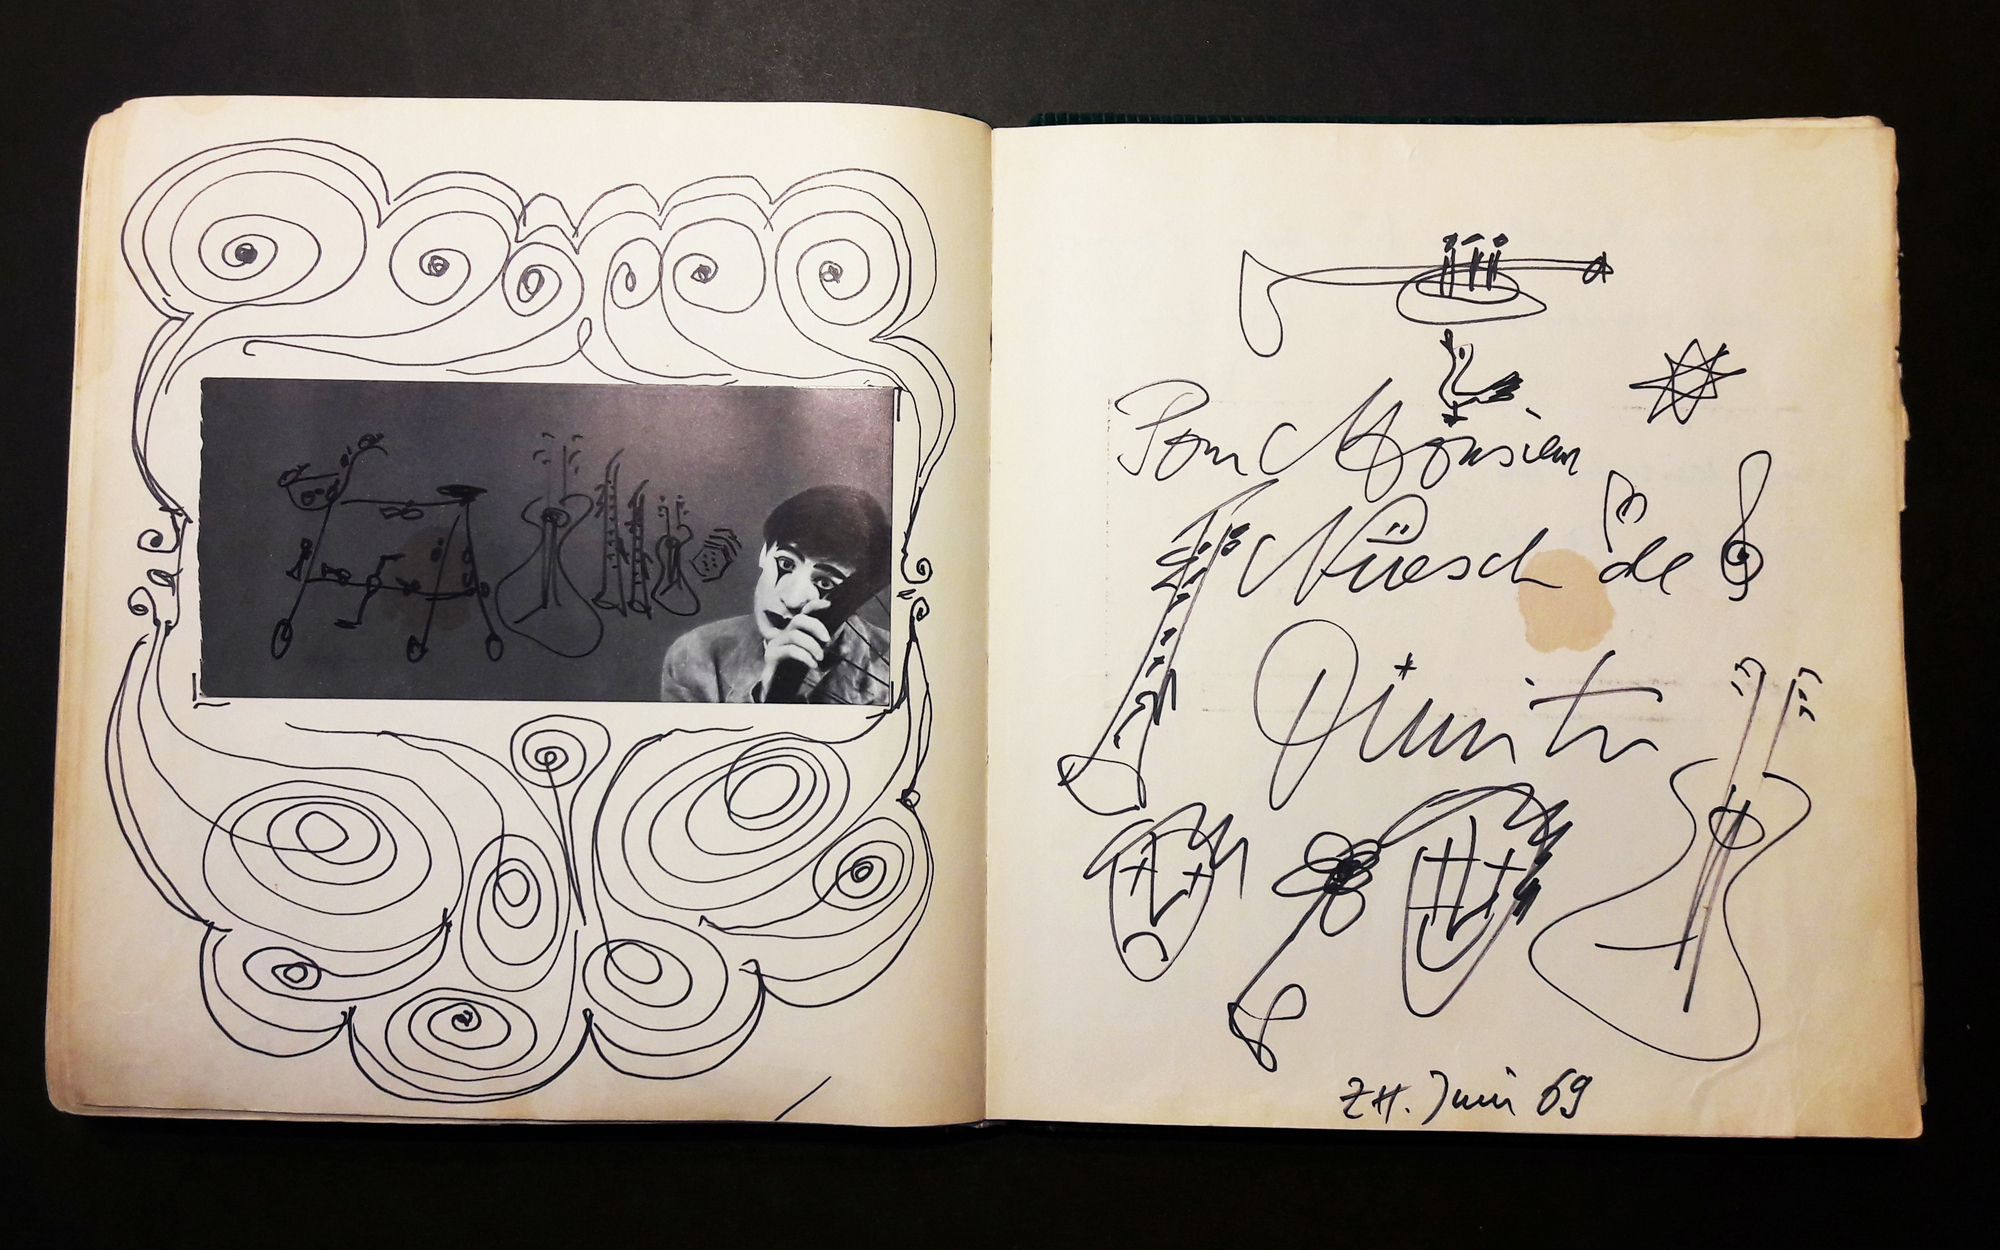 Pour Monsieur
Nüesch de
Dimitri
ZH. Juni 69